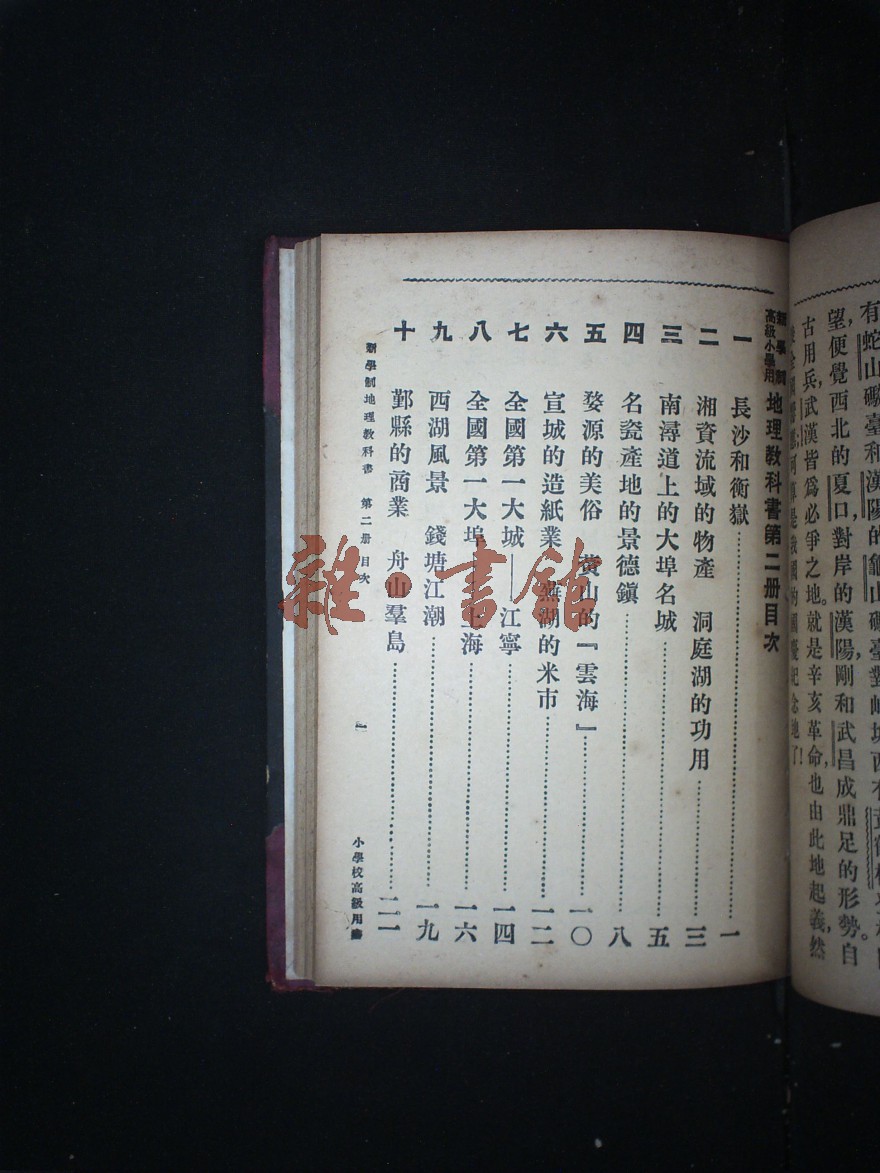 有蛇山礮臺和漢陽的龜山礮臺對峙城西有黃鶴樓
望,便覺西北的夏口,對岸的漢陽,剛和武昌成鼎足的形勢。自
古用兵,武漢皆爲必爭之地。就是辛亥革命,也由此地起義,然
是我國的國慶紀念地了!
新學制
高級小學用
地理教科書第二册目次
一 長沙和衡嶽 一
二 湘資流域的物產 洞庭湖的功用 三
三 南潯道上的大埠名城 五
四 名瓷產地的景德鎮 八
五 婺源的美俗 黃山的『雲海』 一〇
六 宣城的造紙業 蕪湖的米市 一二
七 全國第一大城——江寧 一四
八 全國第一大埠——上海 一六
九 西湖風景 錢塘江潮 一九
十 鄞縣的商業 舟山羣島 二一
新學制地理教科書 第二册 目次
一
小學校高級用書
雜·書館